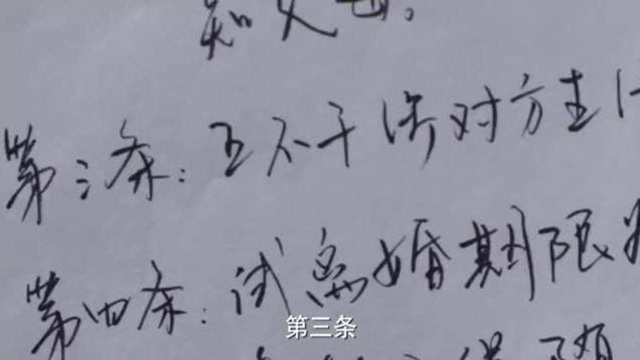 第三条:互不干涉对方生
第四条:试离婚期限
第三条